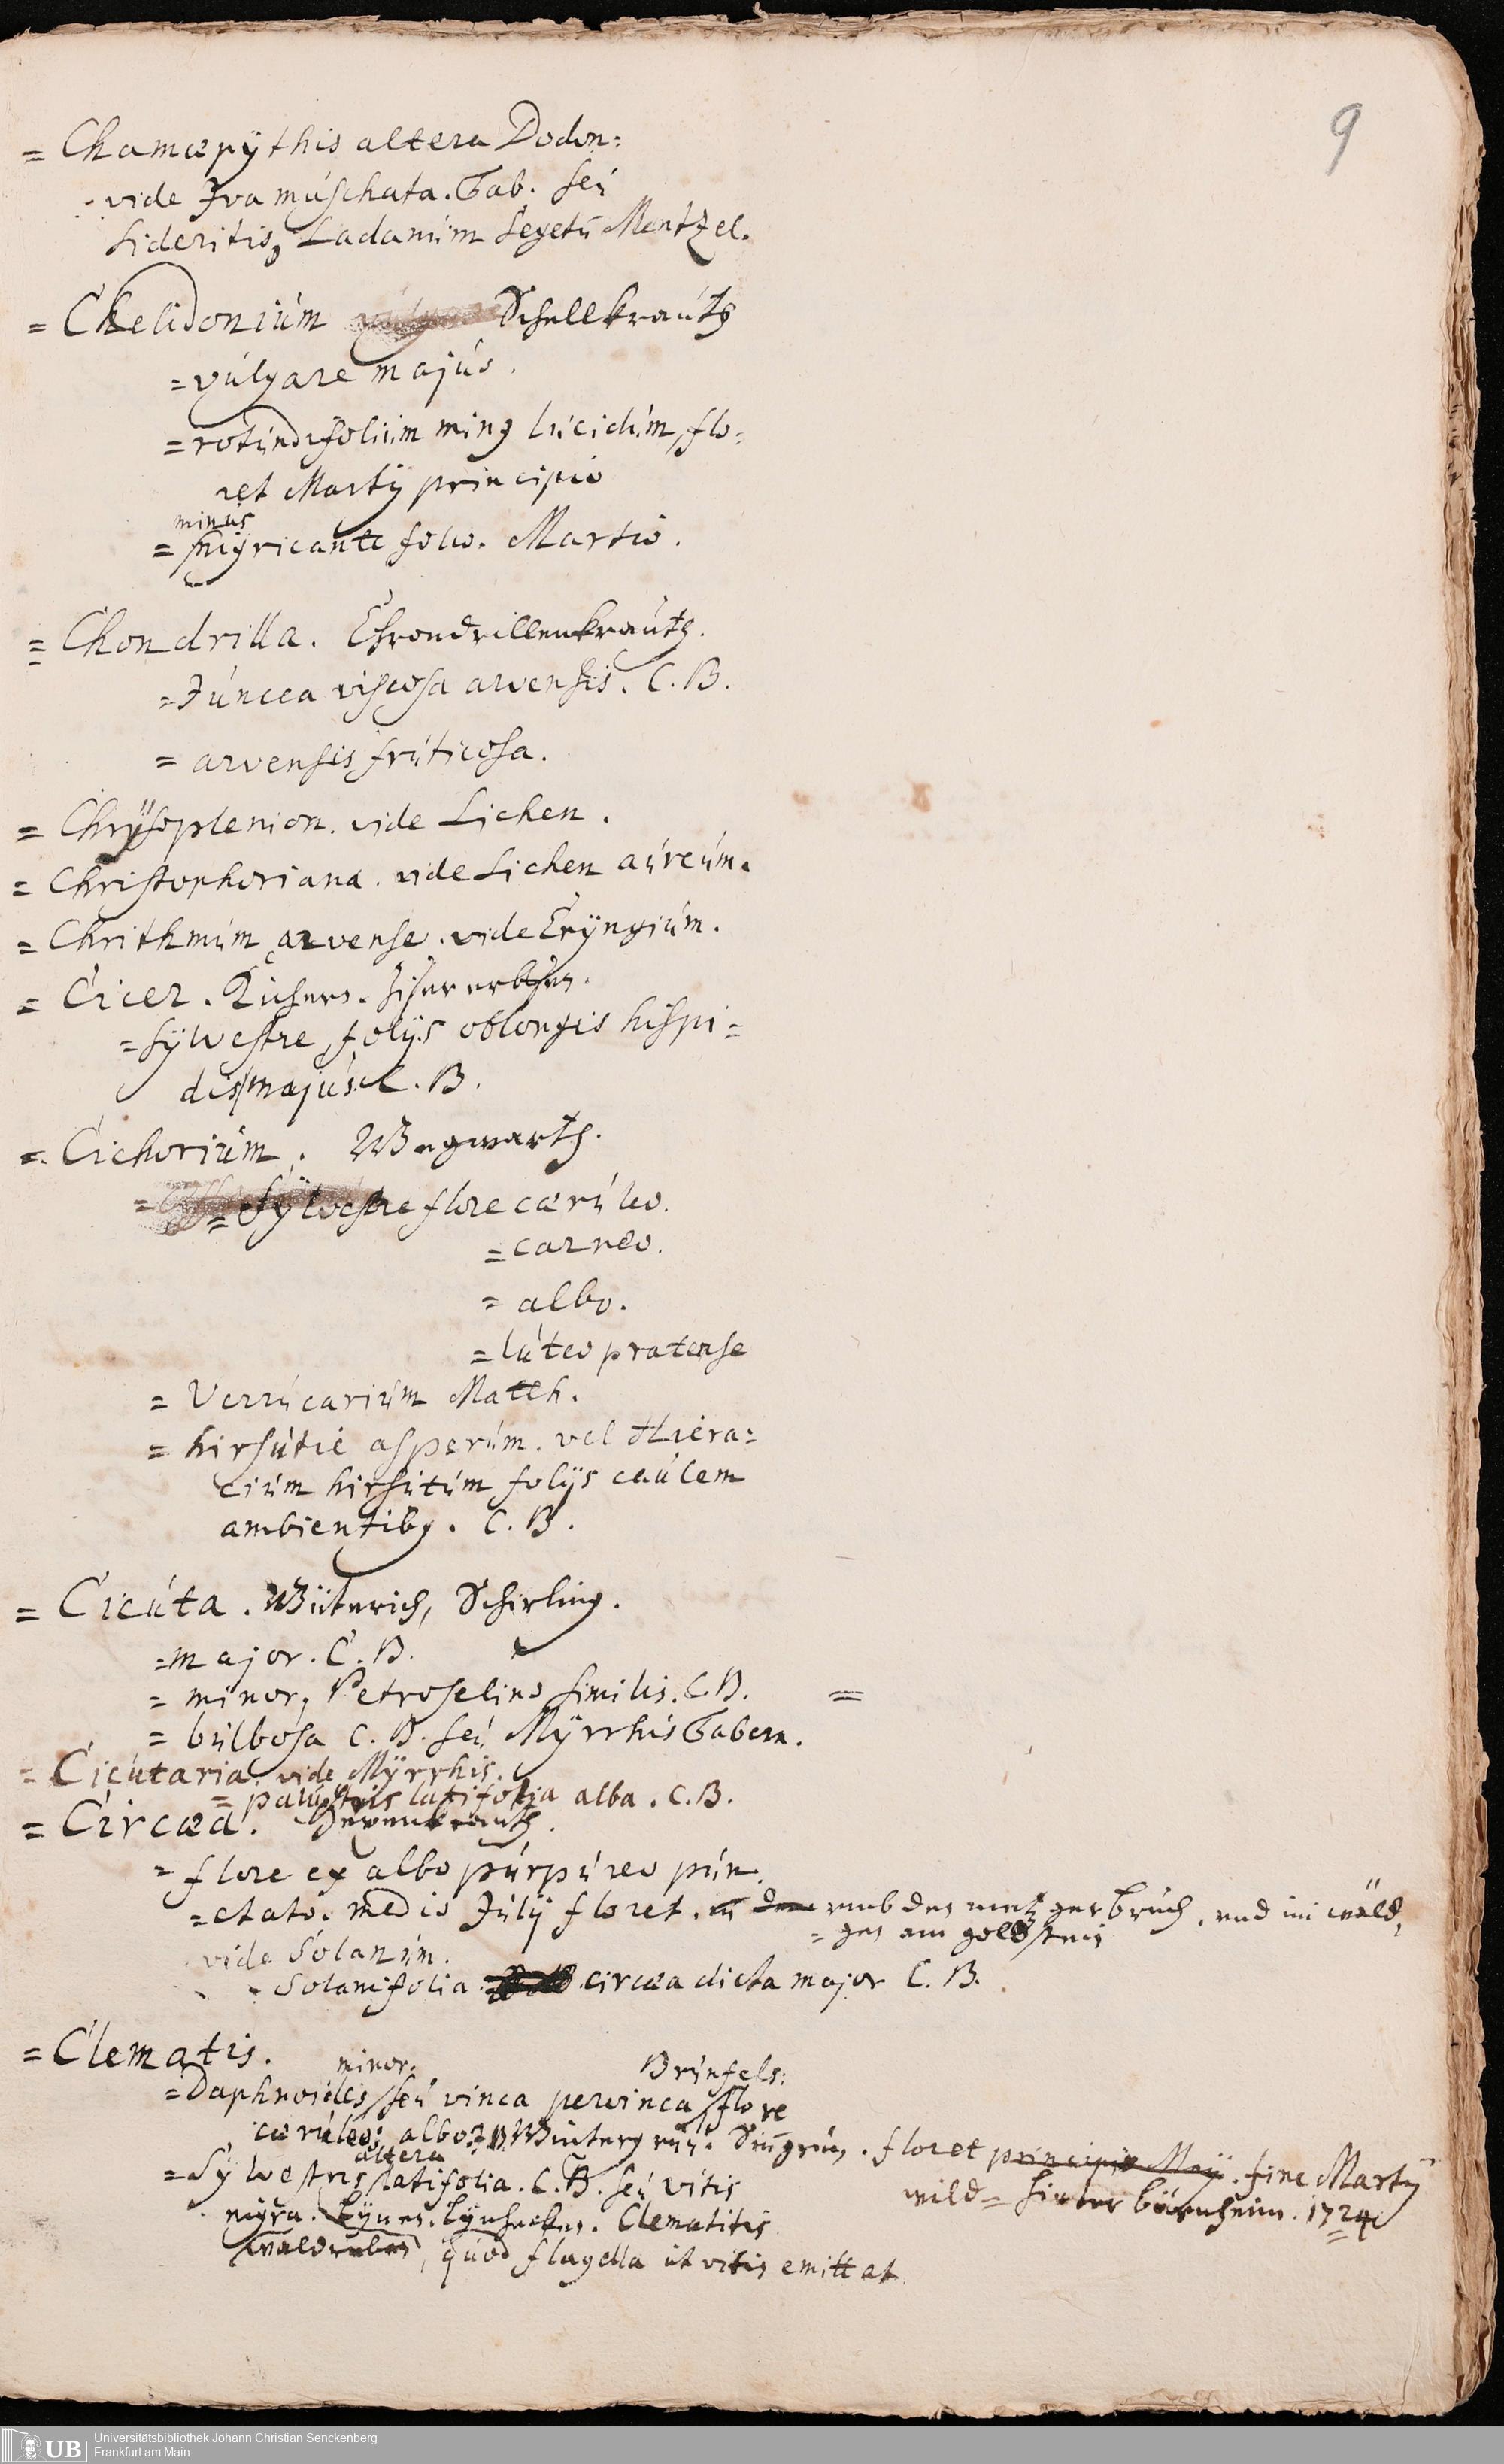 9
= Chamæpÿthis altera Dodon:
vide Iva muschata. Tab. seu
Sideritis, Ladanum segetū Mentzel.
= Chelidonium Schellkrautz
= vulgare majus.
= rotundifolium ming lucidum, flo=
ret Martÿ principio
minus
= nigricante folio. Martio.
= Chondrilla. Chrondrillenkrautz.
= Juncea viscosa arvensis. C. B.
= arvensis fruticosa.
= Chrÿsoplenion. vide Lichen.
= Christophoriana. vide Lichen aureum.
= Chrithmum arvense. vide Erÿngium.
= Cicer. Kichern. Zisererbsen.
= sÿlvestre, folÿs oblongis hispi=
dis, majus. C. B.
= Cichorium. Wegwarth.
= Sÿlvestre flore cæruleo.
= carneo.
= albo.
= luteo pratense
= Verrucarium Matth.
= hirsutie asperum. vel Hiera=
cium hirsutum folÿs caulem
ambientiby. C. B.
= Cicuta. Wüterich, Schirling.
= major. C. B.
= minor, Petroselino similis. C. B. =
= bulbosa C. B. seu Mÿrrhis Tabern.
= Cicutaria. vide Mÿrrhis.
= palustris latifolia alba. C. B.
= Circæa. Hexenkrautz.
= flore ex albo purpureo pun.
= ctato. medio Julÿ floret. umb den metzgerbruch. und in wäld,
= gen am goldstein
vide Solanum.
Solanifolia. circæa dicta major C. B.
= Clematis.
minor. Brunfels:
= Daphnoides, seu vinca pervinca, flore
cæruleo; albo. Wintergrün. Singrün. floret principio Maÿ. fine Martÿ
wild = hinter börnheim. 1724
altera
= Sÿlvestris latifolia. C. B. seu vitis
nigra. Lÿnen. Clematitis
waldreben, quod flagella ut vitis emittat.
Universitätsbibliothek Johann Christian Senckenberg
Frankfurt am Main
UB